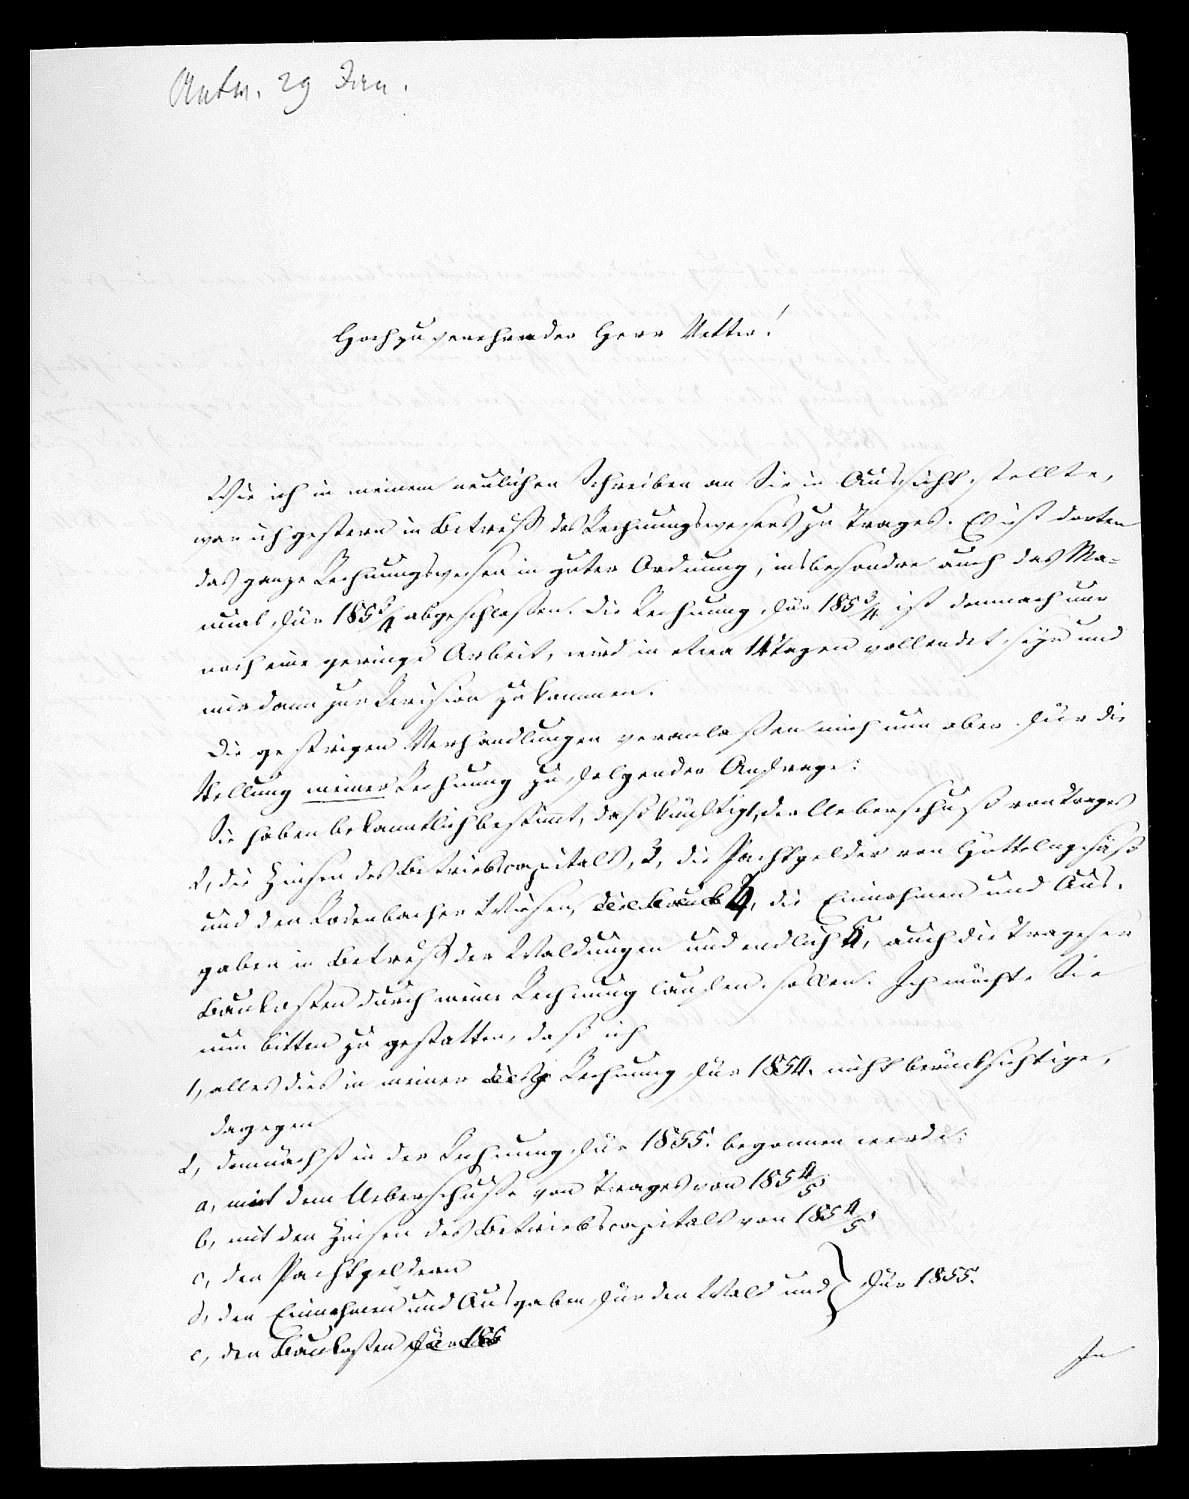 Antw. 29 Jan.
Hochzuverehrender Herr Vetter!
Wie ich in meinem neulichen Schreiben an Sie in Aussicht stellte,
war ich gestern in Betreff des Rechnungswesens zu Trages. Es ist dorten
das ganze Rechnungswesen in guter Ordnung, insbesondre auch das Ma-
nual für 1853/4 abgeschloßen. Die Rechnung für 1853/4 ist demnach nur
noch eine geringe Arbeit, wird in etwa 14 Tagen vollendet seyn und
mir dann zur Revision zukommen.
Die gestrigen Verhandlungen veranlaßen mich nun aber für die
Stellung meiner Rechnung zu folgender Anfrage:
Sie haben bekanntlich bestimmt, daß künftig 1, der Ueberschuß von Trages
2, die Zinsen des Betriebscapitals, 3, die Pachtgelder von Hüttelngesäß
und den Rodenbacher Wiesen, 4, die Einnahmen und Aus-
gaben in Betreff der Waldungen und endlich 5, auch die Trageser
Baukosten durch meine Rechnung laufen sollen. Ich möchte Sie
nun bitten zu gestatten, daß ich
1, alles dies in meiner Rechnung für 1854. nicht berücksichtige,
dagegen
2, demnächst in der Rechnung für 1855. begonnen werde:
a, mit dem Ueberschuße von Trages von 1854/5
b, mit den Zinsen des Betriebscapitals von 1854/5
c, den Pachtgeldern
d, den Einnahmen und Ausgaben für den Wald und } für 1855.
e, den Baukosten für 185
In